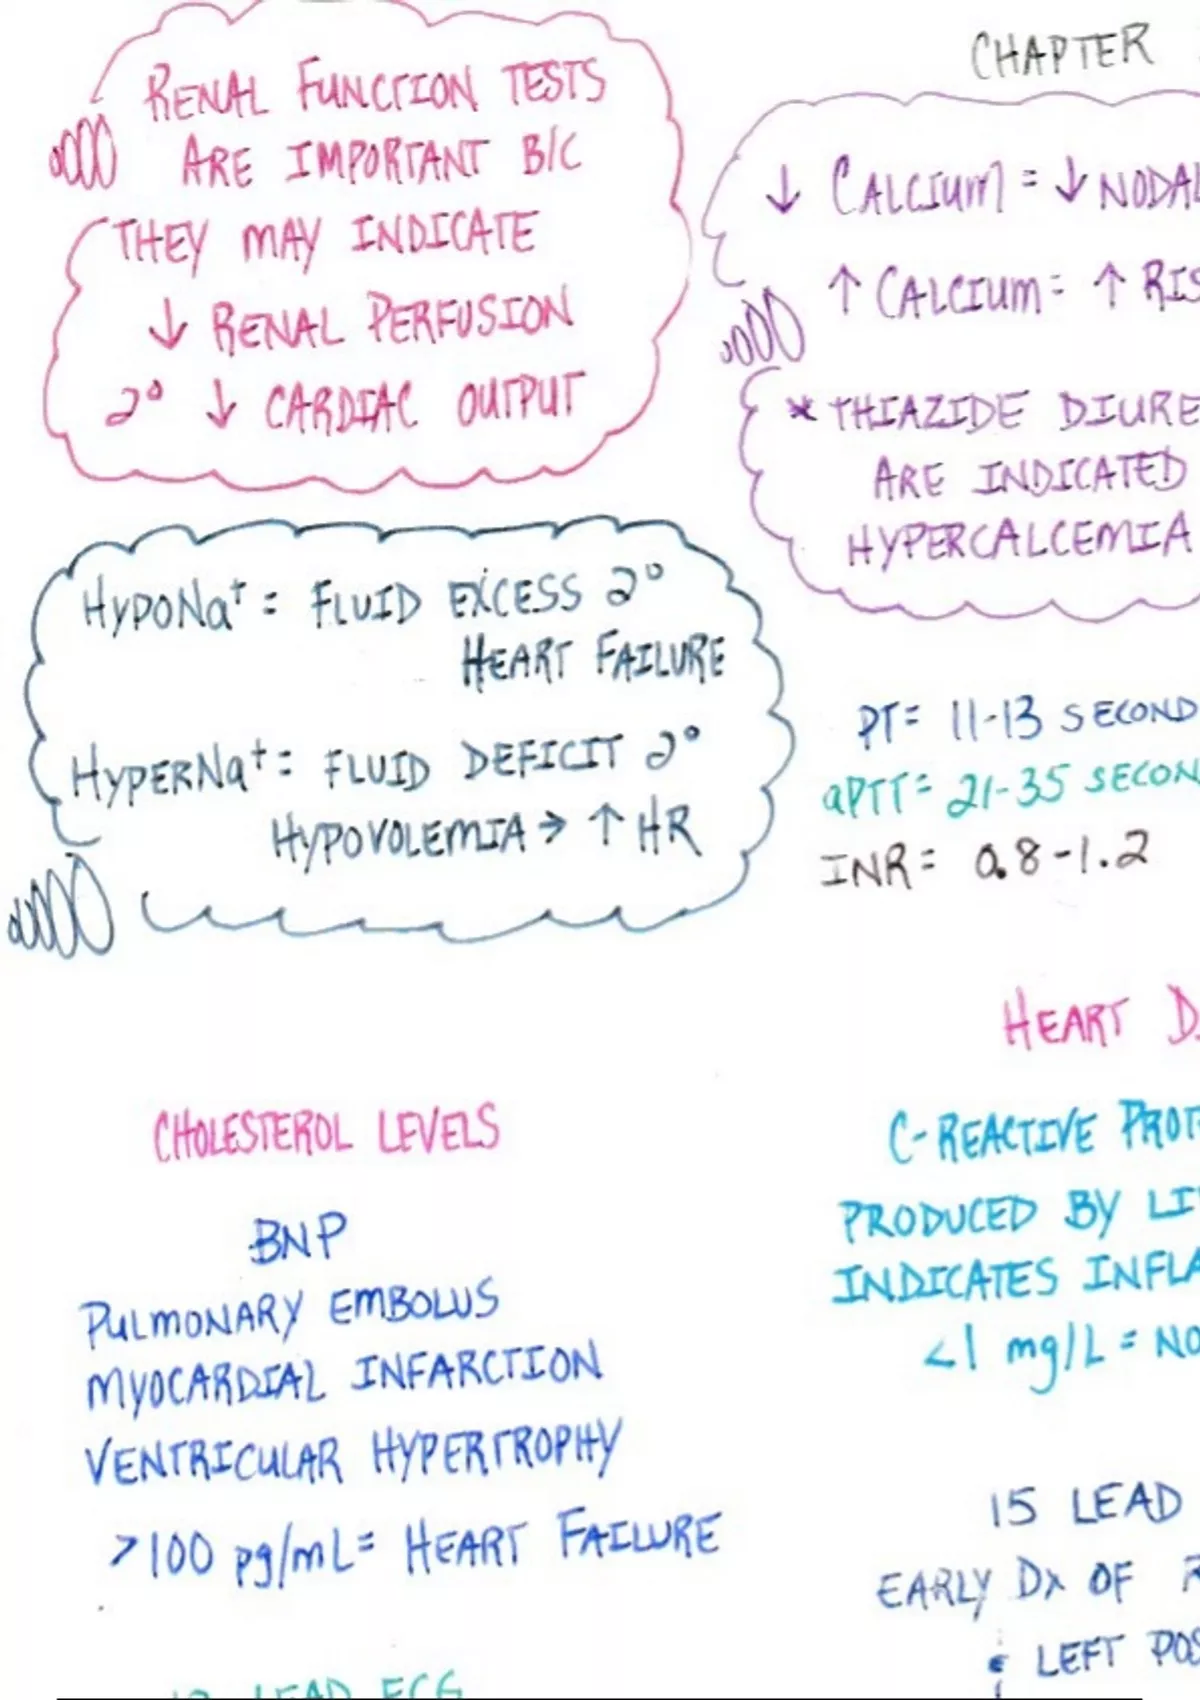 RENAL FUNCTION TESTS
ARE IMPORTANT B/C
THEY MAY INDICATE
↓ RENAL PERFUSION
2° ↓ CARDIAC OUTPUT
HYPONa⁺ = FLUID EXCESS 2°
HEART FAILURE
HYPERNa⁺ = FLUID DEFICIT 2°
HYPOVOLEMIA → ↑ HR
CHOLESTEROL LEVELS
BNP
PULMONARY EMBOLUS
MYOCARDIAL INFARCTION
VENTRICULAR HYPERTROPHY
>100 pg/mL = HEART FAILURE
12 LEAD ECG
CHAPTER
↓ CALCIUM = ↓ NODAL
↑ CALCIUM = ↑ RIS
* THIAZIDE DIURE
ARE INDICATED
HYPERCALCEMIA
PT = 11-13 SECOND
aPTT = 21-35 SECON
INR = 0.8-1.2
HEART D
C-REACTIVE PROT
PRODUCED BY LI
INDICATES INFLA
<1 mg/L = NO
15 LEAD
EARLY Dx OF R
LEFT POS